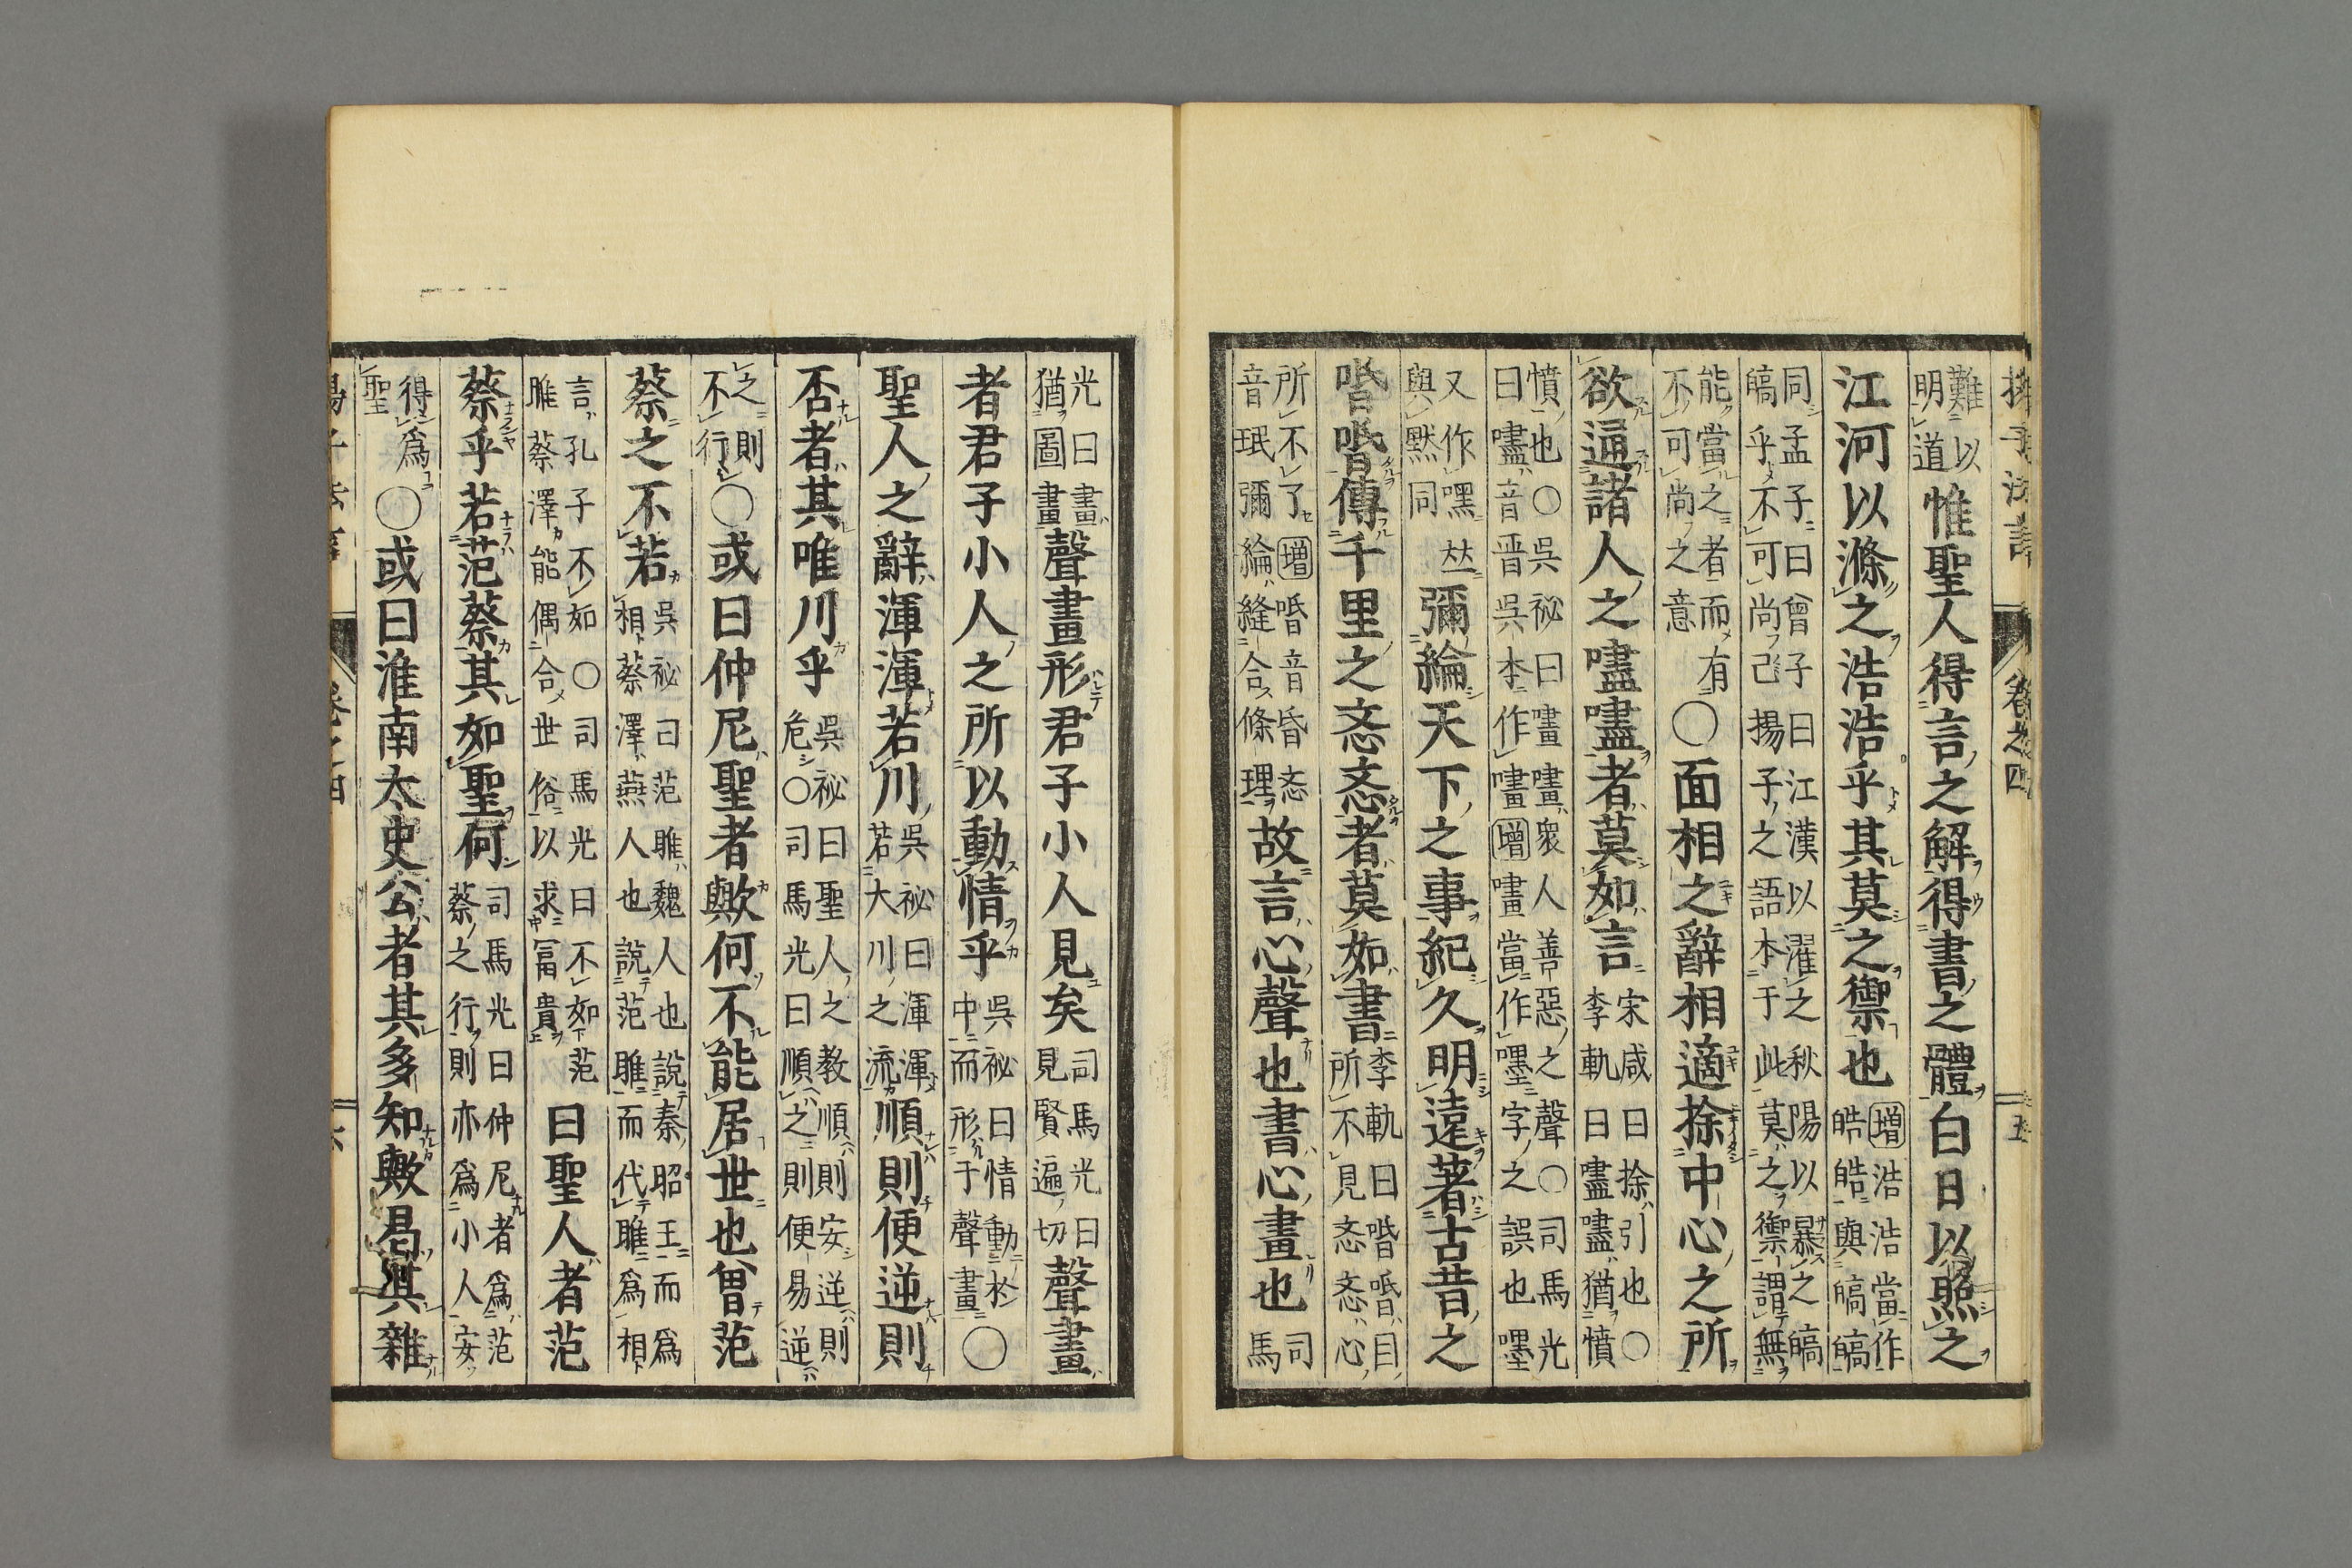 揚子法言 卷之四 五
難以
明道
惟聖人得言之解得書之體白日以照之
江河以滌之浩浩乎其莫之禦也
增浩浩當作
皓皓與皜皜
同孟子曰曾子曰江漢以濯之秋陽以暴之皜
皜乎不可尚已揚子之語本于此莫之禦謂無
能當之者而有
不可尚之意
○面相之辭相適捈中心之所
欲通諸人之嚍嚍者莫如言
宋咸曰捈引也○
李軌曰嚍嚍猶憤
憤也○吳祕曰嚍嚍衆人善惡之聲○司馬光
曰嚍音晋吳本作嚍增嚍當作嚜字之誤也嚜
又作嘿𠀤
與黙同
彌綸天下之事紀久明遠著古昔之
㖧㖧傳千里之忞忞者莫如書
李軌曰㖧㖧目
所不見忞忞心
所不了增㖧音昏忞
音珉彌綸縫合條理
故言心聲也書心畫也
司
馬
光曰畫
猶圖畫
聲畫形君子小人見矣
司馬光曰
見賢遍切
聲畫
者君子小人之所以動情乎
吳祕曰情動於
中而形于聲畫
○
聖人之辭渾渾若川
吳祕曰渾渾
若大川之流
順則便逆則
否者其唯川乎
吳祕曰聖人之教順則安逆則
危○司馬光曰順之則便易逆
之則
不行
○或曰仲尼聖者歟何不能居世也曾范
蔡之不若
吳祕曰范雎魏人也說秦昭王而爲
相蔡澤燕人也說范雎而代雎爲相
言孔子不如○司馬光曰不如范
雎蔡澤能偶合世俗以求冨貴
曰聖人者范
蔡乎若范蔡其如聖何
司馬光曰仲尼者爲范
蔡之行則亦爲小人安
得爲
聖
○或曰淮南太史公者其多知歟曷其雜
揚子法言 卷之四 六